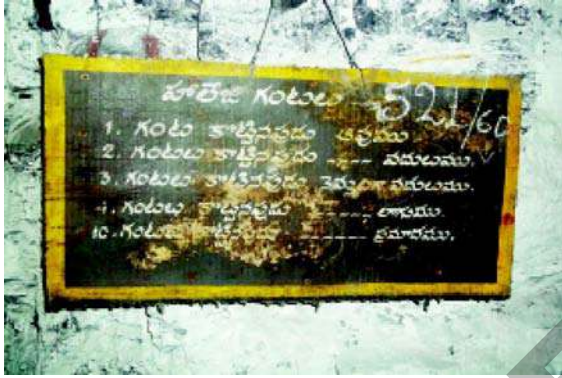 హాలేజి గంటలు 521/60
1. గంట కొట్టినపుడు ఆపుము
2. గంటలు కొట్టినపుడు ----- వదులుము.
3. గంటలు కొట్టినపుడు వదులుము.
4. గంటలు కొట్టినపుడు ----- లాగుము.
10. గంటలు కొట్టినపుడు ----- ప్రమాదము.